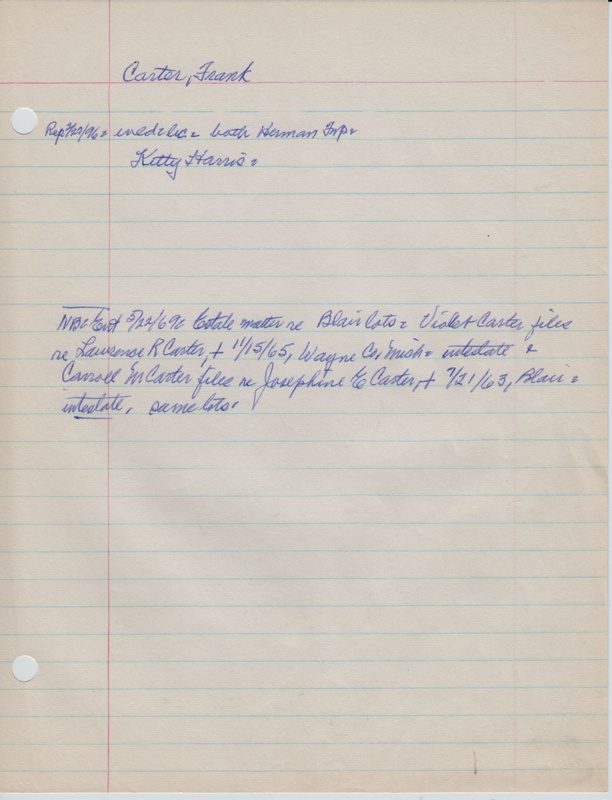 Carter, Frank
Rep 7/29/96 = wedd lic. = both Herman Twp =
Kitty Harris =
NBC Ent 5/22/69 = Estate matter re Blair lots = Violet Carter files
re Lawrence R Carter, + 11/15/65, Wayne Co, Mich = intestate &
Carroll M Carter files re Josephine E Carter, + 7/21/63, Blair =
intestate, same lots.